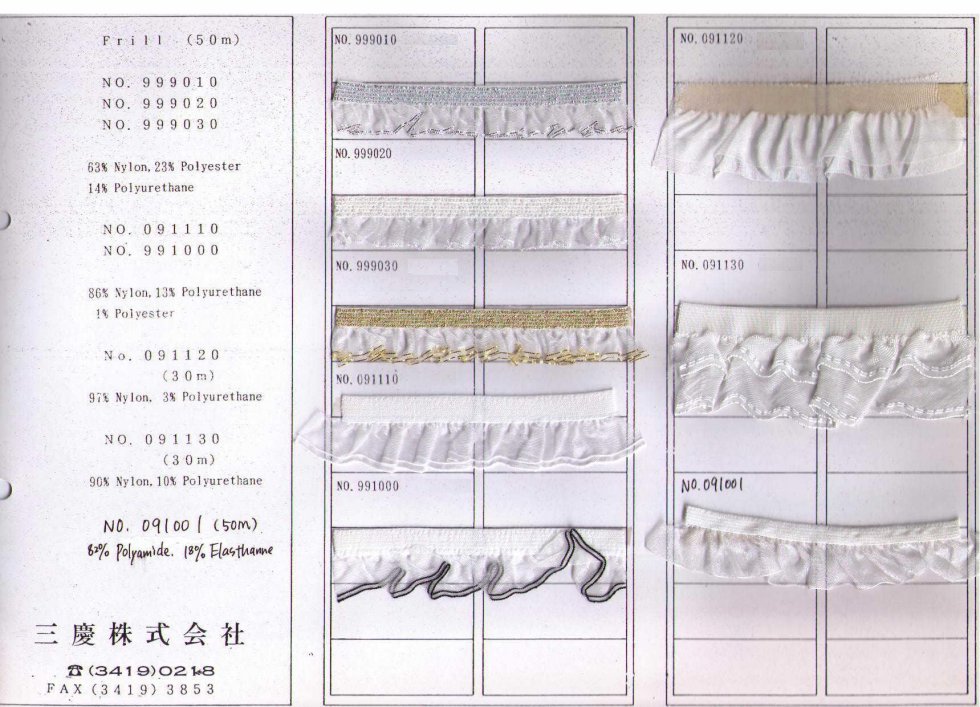 Frill (50m)
NO. 999010
NO. 999020
NO. 999030
63% Nylon, 23% Polyester
14% Polyurethane
NO. 091110
NO. 991000
86% Nylon, 13% Polyurethane
1% Polyester
No. 091120
(30m)
97% Nylon, 3% Polyurethane
NO. 091130
(30m)
90% Nylon, 10% Polyurethane
NO. 091001 (50m)
82% Polyamide. 18% Elasthanne
三慶株式会社
☎(3419)0218
FAX (3419) 3853
NO. 999010
NO. 999020
NO. 999030
NO. 091110
NO. 991000
NO. 091120
NO. 091130
NO. 091001